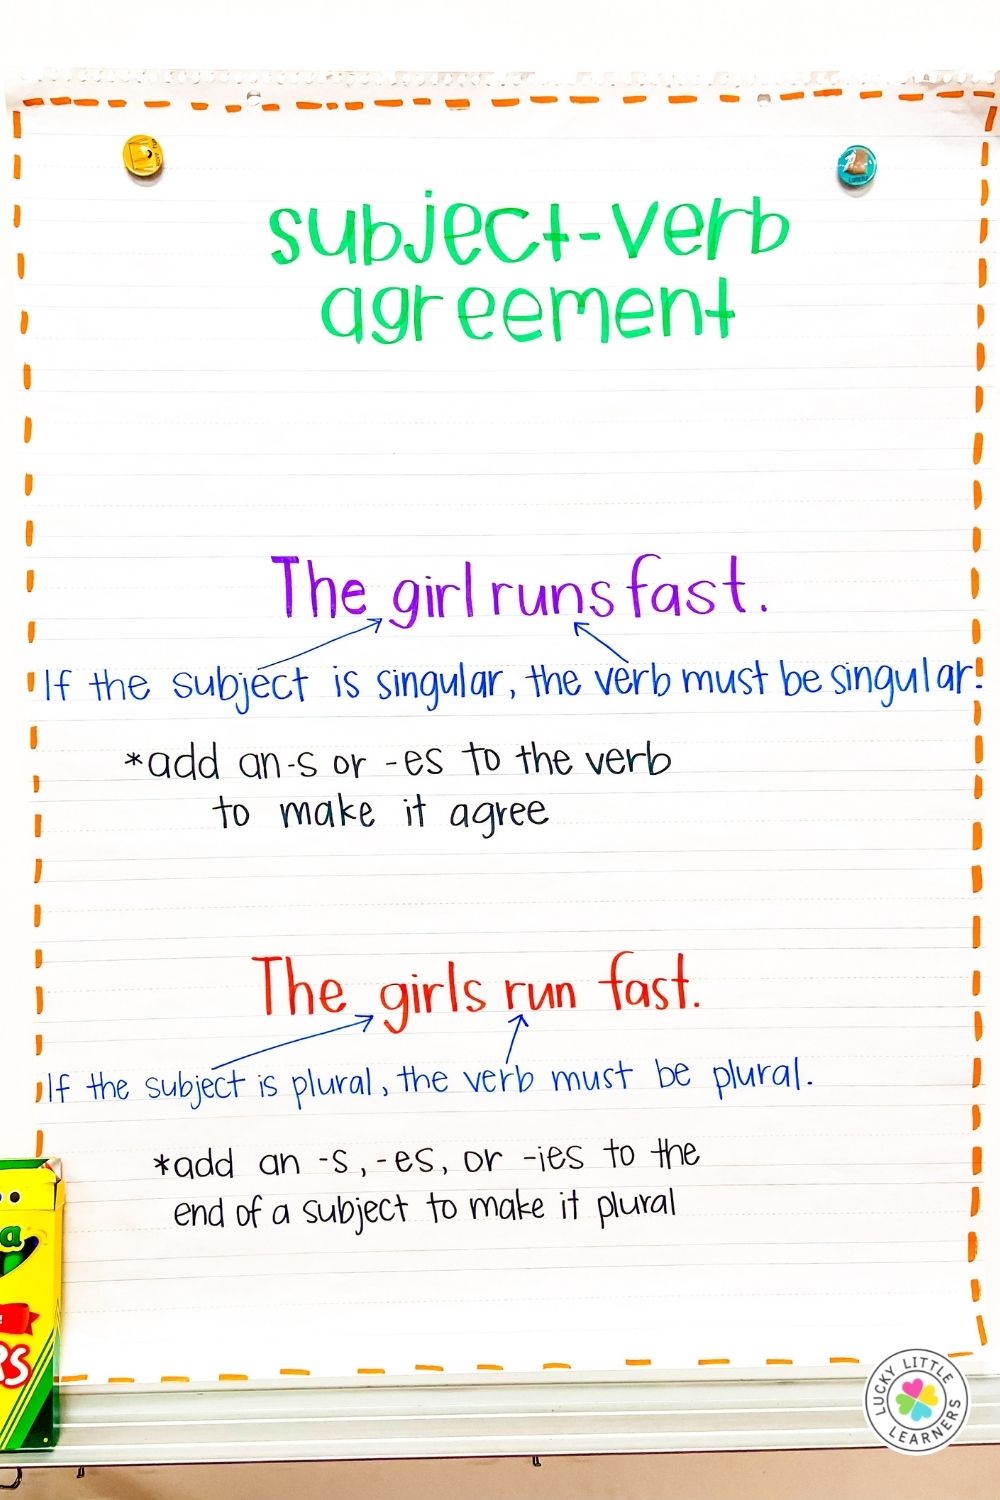 subject-verb
agreement
The girl runs fast.
If the subject is singular, the verb must be singular.
*add an -s or -es to the verb
to make it agree
The girls run fast.
If the subject is plural, the verb must be plural.
*add an -s, -es, or -ies to the
end of a subject to make it plural
LUCKY LITTLE
LEARNERS